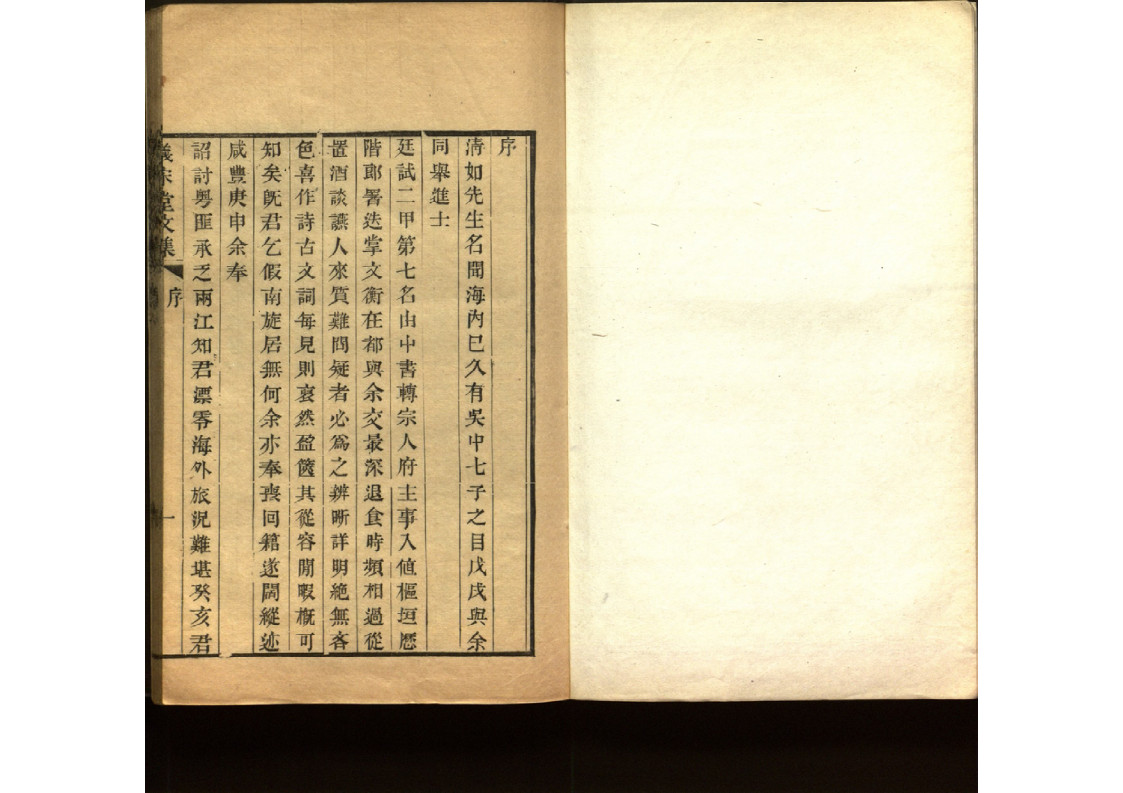 序
清如先生名聞海內已久有吳中七子之目戊戌與余
同舉進士
廷試二甲第七名由中書轉宗人府主事入値樞垣歷
階郎署迭掌文衡在都與余交最深退食時頻相過從
置酒談讌人來質難問疑者必爲之辨晰詳明絶無吝
色喜作詩古文詞每見則裒然盈篋其從容閒暇槪可
知矣旣君乞假南旋居無何余亦奉喪回籍遂闊縱迹
咸豐庚申余奉
詔討粵匪承乏兩江知君漂零海外旅況難堪癸亥君
儀宋堂文集
序
一